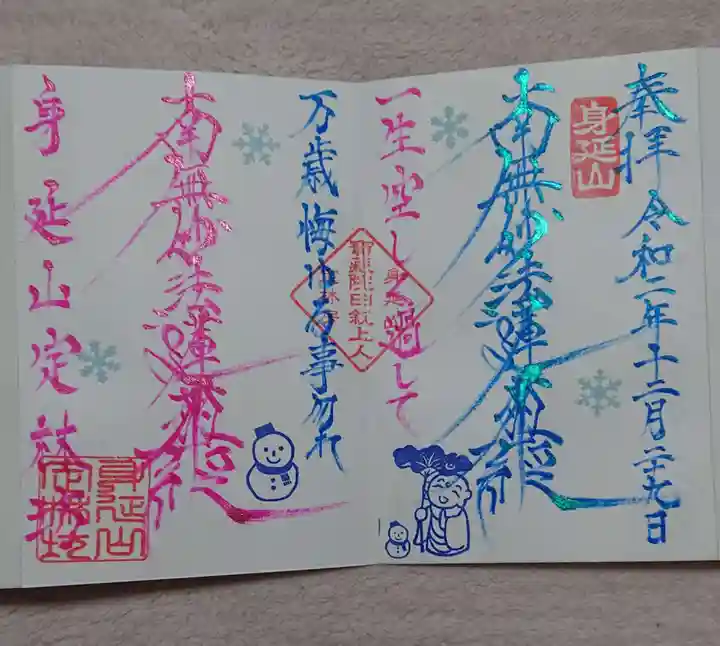 奉拝 令和二年十二月二十九日
身延山
南無妙法蓮華経
一生空しく過して
万歳悔ゆる事勿れ
南無妙法蓮華経
身延山定林坊
身延山
定林坊